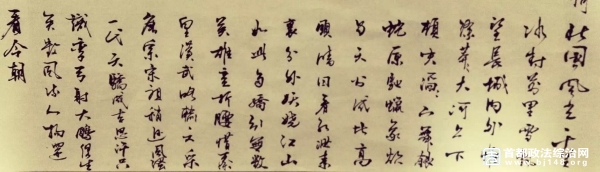 北国风光千
冰封万里雪
望长城内外
馀莽大河上下
顿失滔滔山舞银
蛇原驰蜡象欲
与天公试比高
须晴日看红装素
裹分外妖娆江山
如此多娇引无数
英雄竞折腰惜秦
皇汉武略输文采
唐宗宋祖稍逊风骚
一代天骄成吉思汗只
识弯弓射大雕俱往
矣数风流人物还
看今朝
首都政法综治网
www.bj148.org